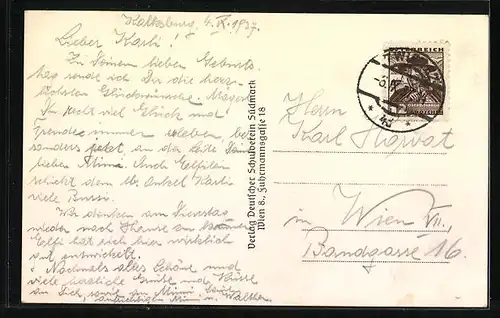 Kalksburg, 4. IX. 1937.
Lieber Karli!
Zu Deinem lieben Geburts-
tag sende ich Dir die herz-
lichsten Glückwünsche. Mögen
Dir recht viel Glück und
Freude immer werden, be-
sonders jetzt an der Seite Deiner
lieben Mimi. Auch Elfilein
schickt dem lb. Onkel Karli
viele Bussi.
Wir denken am Dienstag
wieder nach Hause zu kommen.
Elfi hat sich hier wirklich
gut entwickelt.
Nochmals alles Schöne und
viele herzliche Grüße und Küsse
an Dich, sowie an Mimi
aufrichtigen Mimi u. Walther.
Verlag Deutscher Schulverein Südmark
Wien 8., Fuhrmannsgasse 18
ÖSTERREICH
Herrn
Karl Horvat
in Wien VII.,
Bandgasse 16.